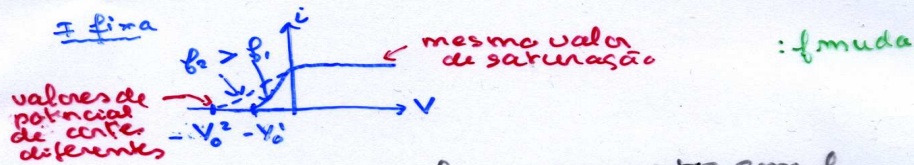 I fixa
i
f₂ > f₁
mesmo valor
de saturação
: f muda
valores de
potencial
de corte
diferentes
V
- V₀² - V₀¹